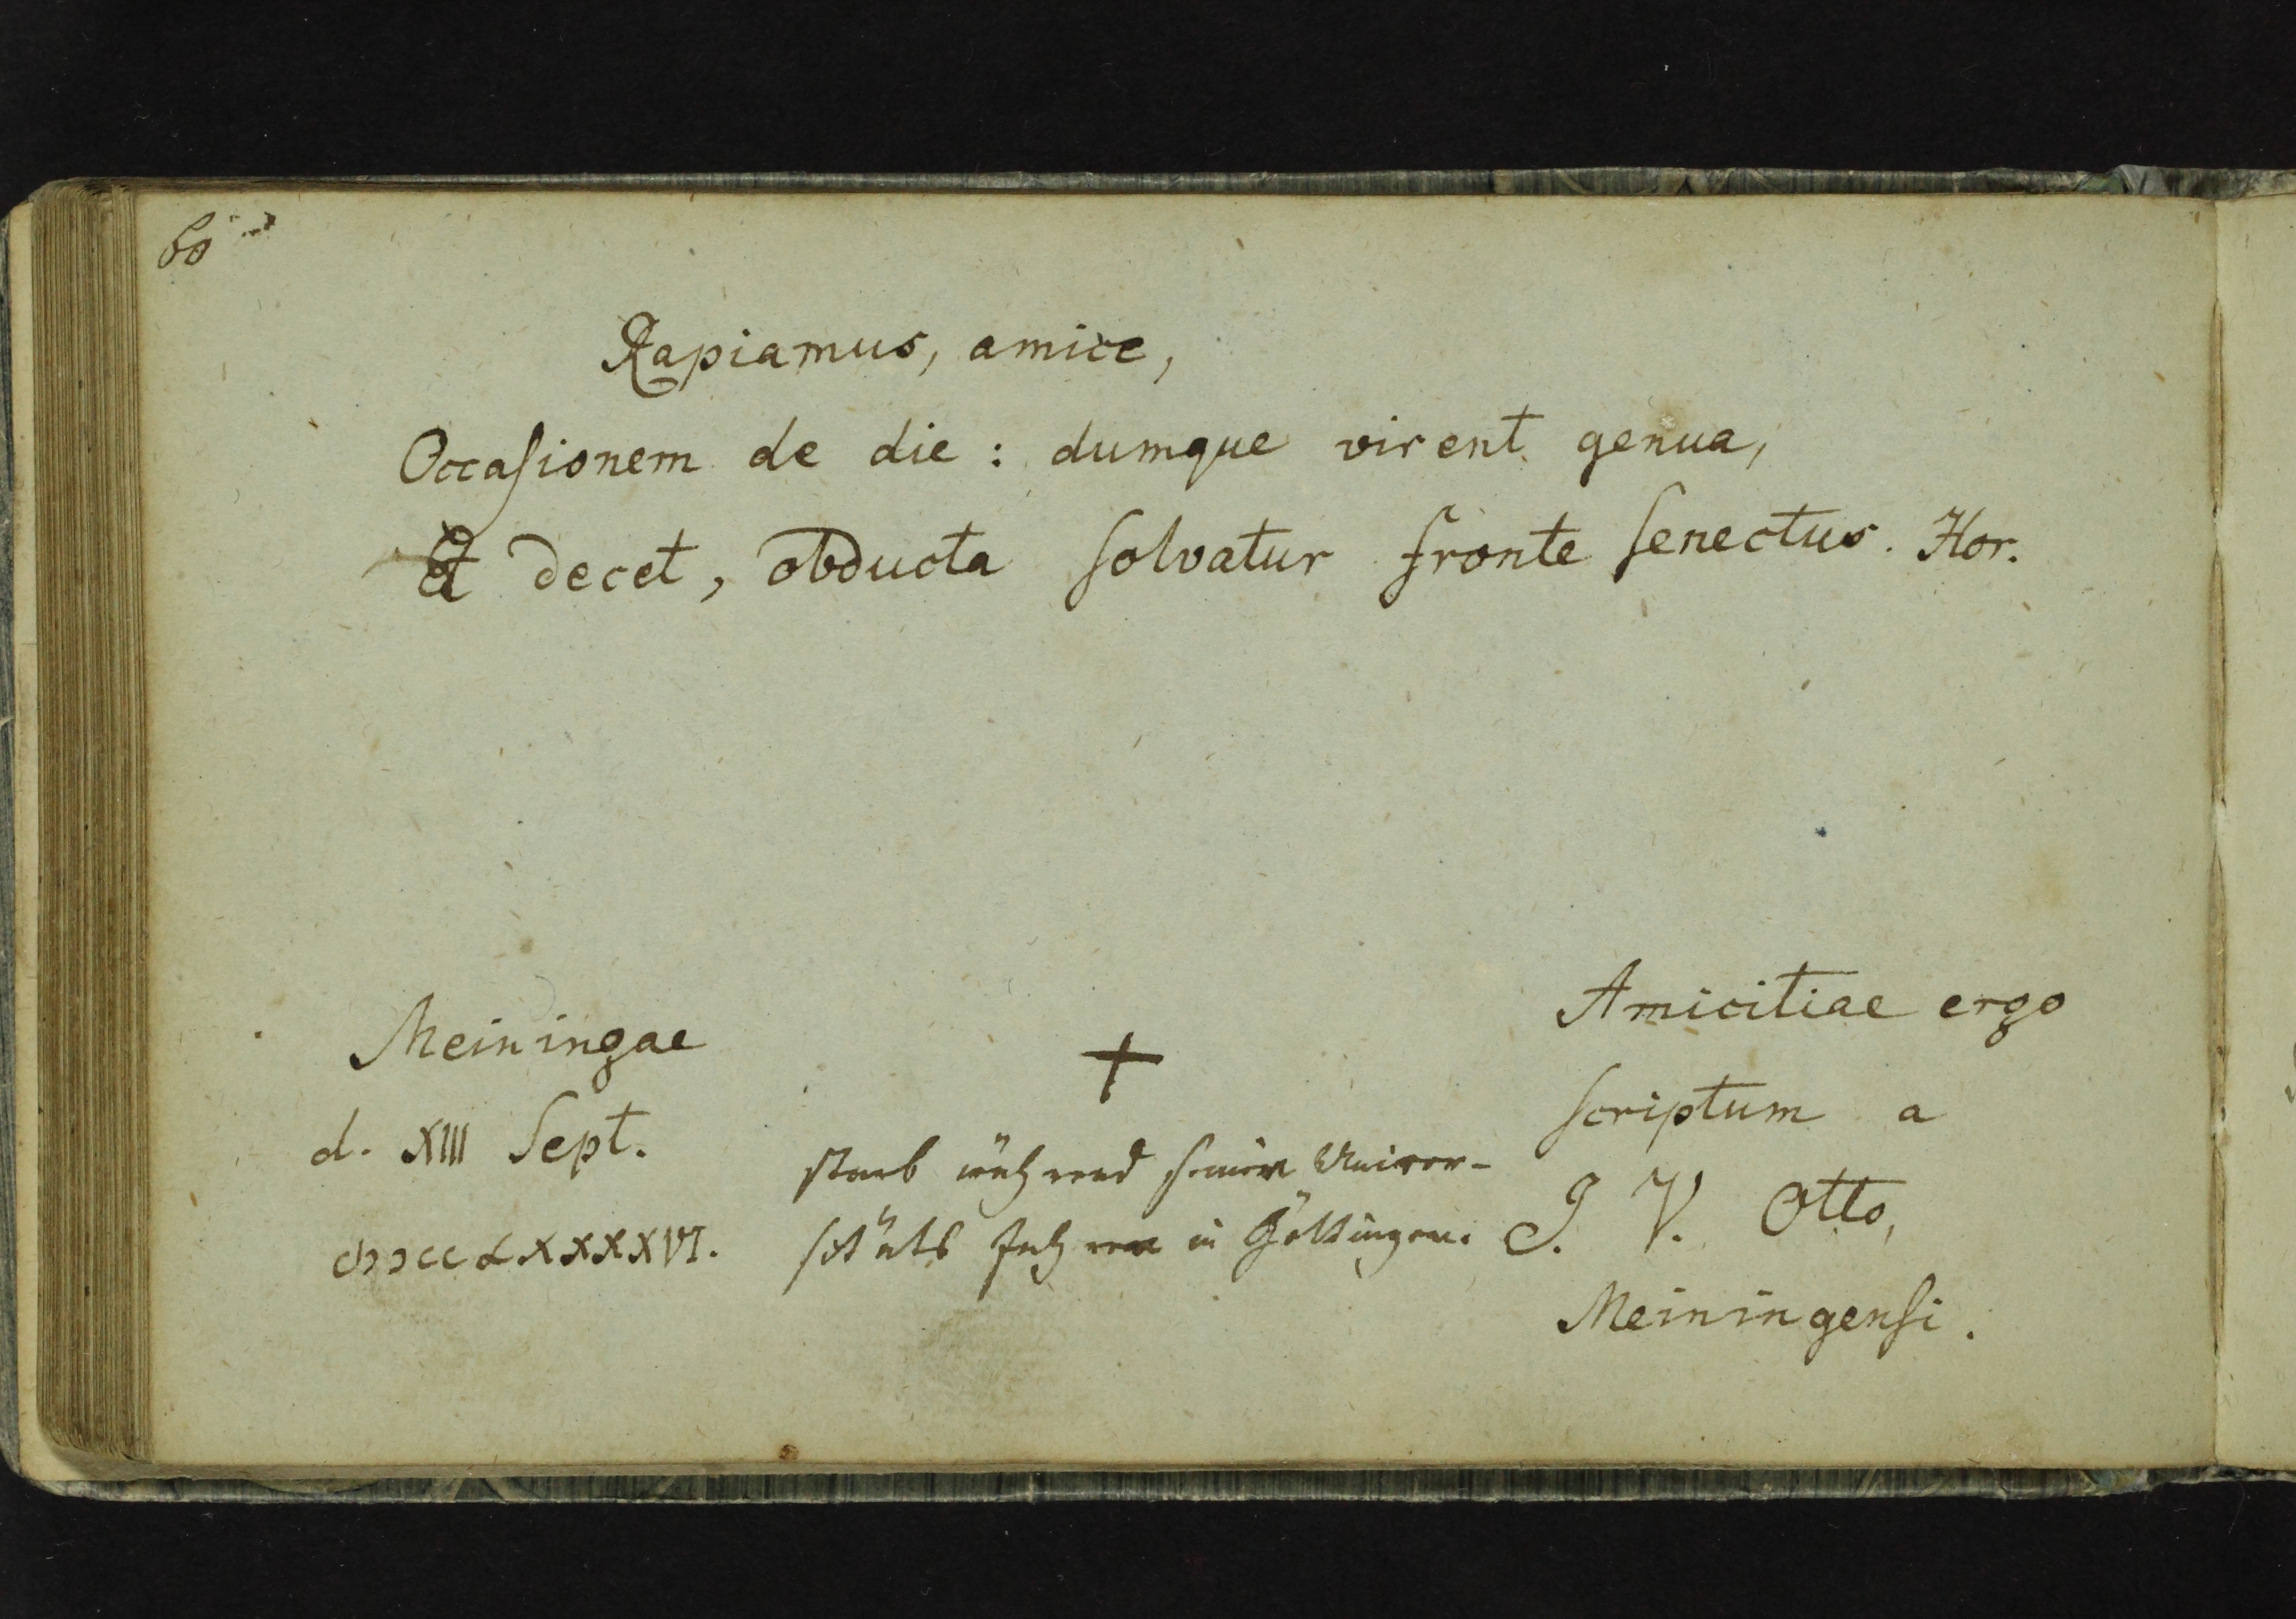 60
Rapiamus, amice,
Occaſionem de die: dumque virent genua,
Et decet, obducta ſolvatur fronte ſenectus. Hor.
Meiningae
d. XIII Sept.
cIↃIↃccLXXXXVI.
+
starb während seiner Univer-
sitäts Jahren in Göttingen.
Amicitiae ergo
ſcriptum a
J. V. Otto,
Meiningenſi.